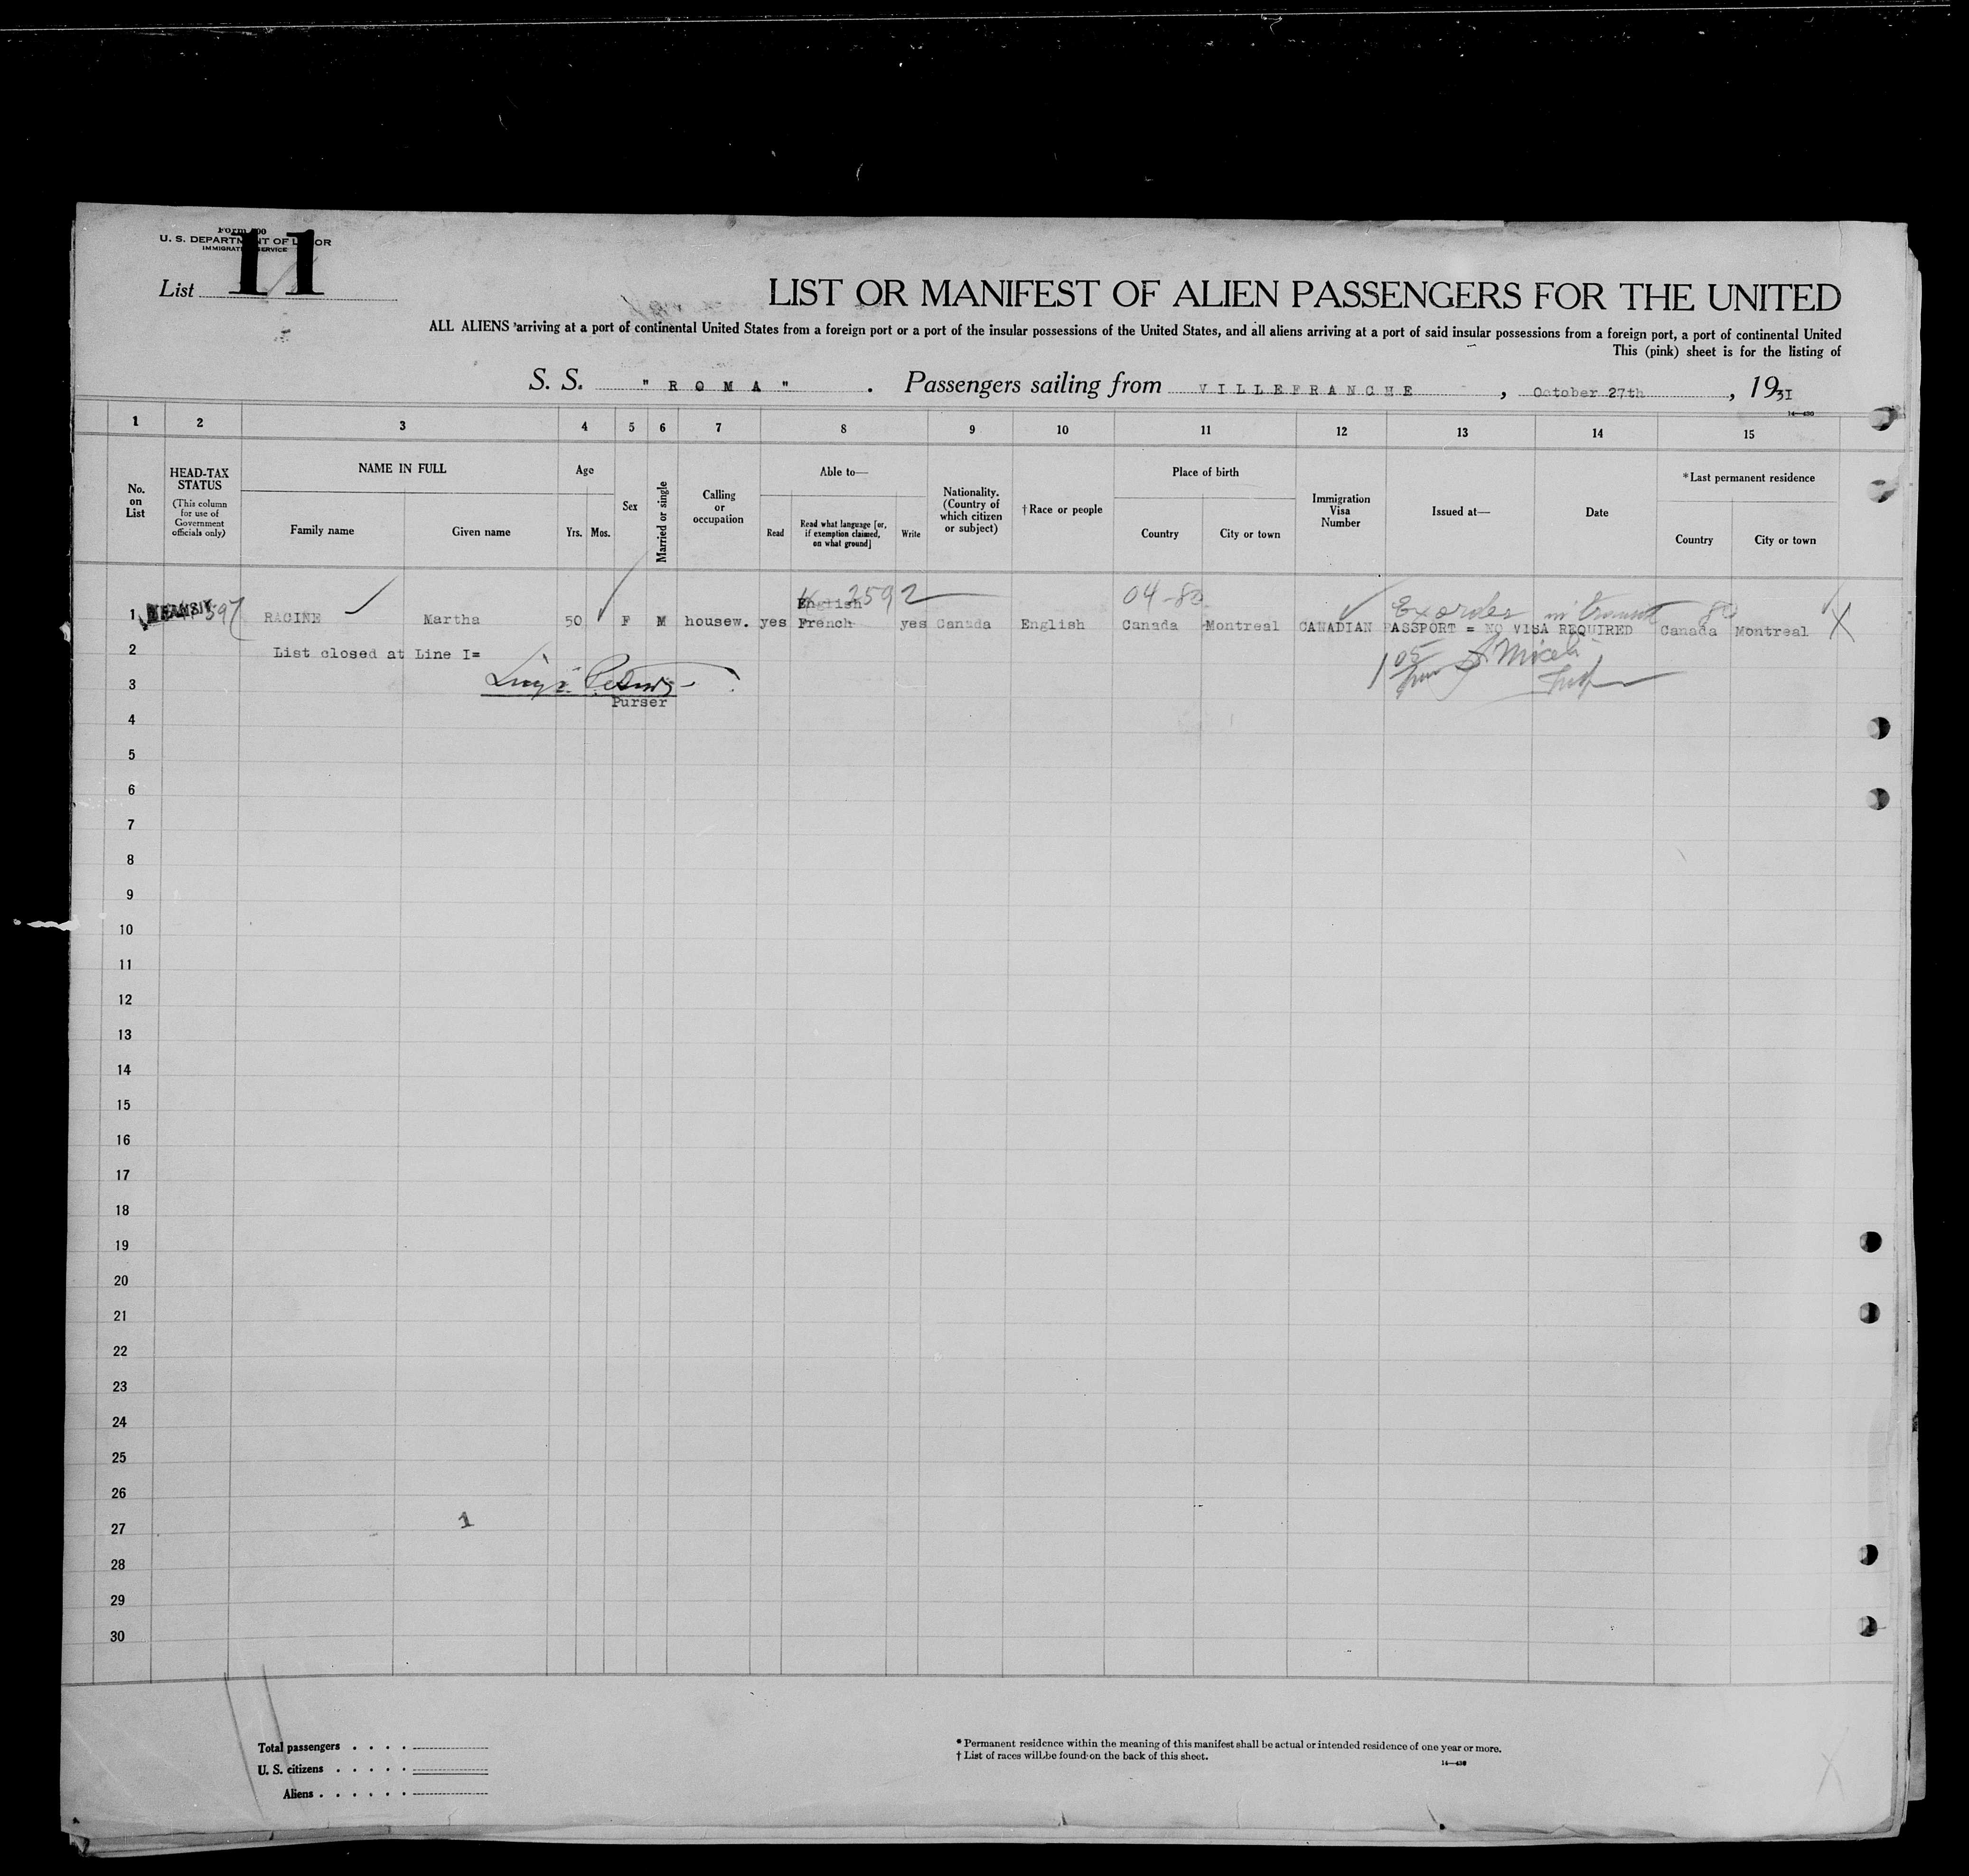 Form 500
U. S. DEPARTMENT OF LABOR
IMMIGRATION SERVICE
List 11
LIST OR MANIFEST OF ALIEN PASSENGERS FOR THE UNITED
ALL ALIENS arriving at a port of continental United States from a foreign port or a port of the insular possessions of the United States, and all aliens arriving at a port of said insular possessions from a foreign port, a port of continental United
This (pink) sheet is for the listing of
S. S. " R O M A " . Passengers sailing from V I L L E F R A N C H E , October 27th , 1931
14—430
1 2 3 4 5 6 7 8 9 10 11 12 13 14 15
No. on List
HEAD-TAX STATUS
(This column for use of Government officials only)
NAME IN FULL
Family name
Given name
Age
Yrs.
Mos.
Sex
Married or single
Calling or occupation
Able to—
Read
Read what language [or, if exemption claimed, on what ground]
Write
Nationality. (Country of which citizen or subject)
†Race or people
Place of birth
Country
City or town
Immigration Visa Number
Issued at—
Date
*Last permanent residence
Country
City or town
2592 04-80 Ex order in transit 80
English
1 TRANSIT 597 RACINE Martha 50 F M housew. yes French yes Canada English Canada Montreal CANADIAN PASSPORT = NO VISA REQUIRED Canada Montreal X
2 List closed at Line I=
105
3
Purser
4
5
6
7
8
9
10
11
12
13
14
15
16
17
18
19
20
21
22
23
24
25
26
1
27
28
29
30
Total passengers . . . .
U. S. citizens . . . . .
Aliens . . . . . .
* Permanent residence within the meaning of this manifest shall be actual or intended residence of one year or more.
† List of races will be found on the back of this sheet.
14—430